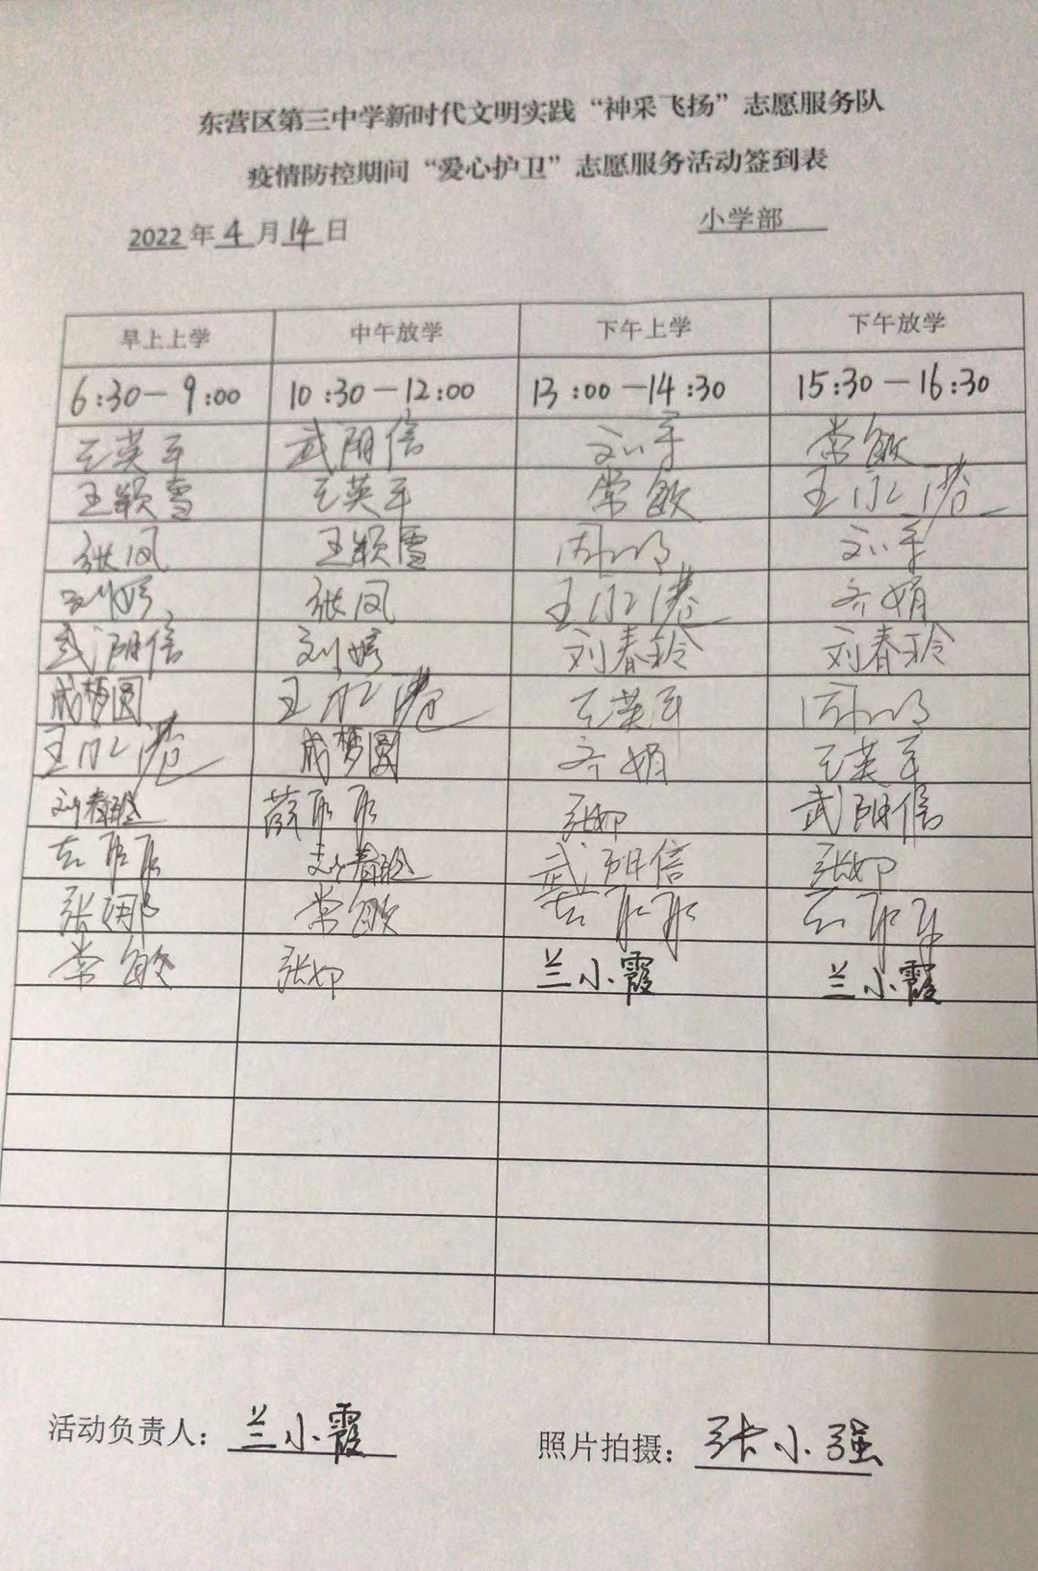 东营区第三中学新时代文明实践“神采飞扬”志愿服务队
疫情防控期间“爱心护卫”志愿服务活动签到表
2022年4月14日 小学部
早上上学 中午放学 下午上学 下午放学
6:30－9:00 10:30－12:00 13:00－14:30 15:30－16:30
王英军 武阴信 刘军 常敏
王颖雪 王英军 常敏 王永港
张凤 王颖雪 周明 刘军
刘婷 张凤 王永港 齐娟
武阴信 刘婷 刘春玲 刘春玲
成梦圆 王永港 王英军 周明
王永港 成梦圆 齐娟 王英军
刘春玲 张如 武阴信
刘春玲 武阴信 张如
张娜 常敏
常敏 张如 兰小霞 兰小霞
活动负责人：兰小霞 照片拍摄：张小强